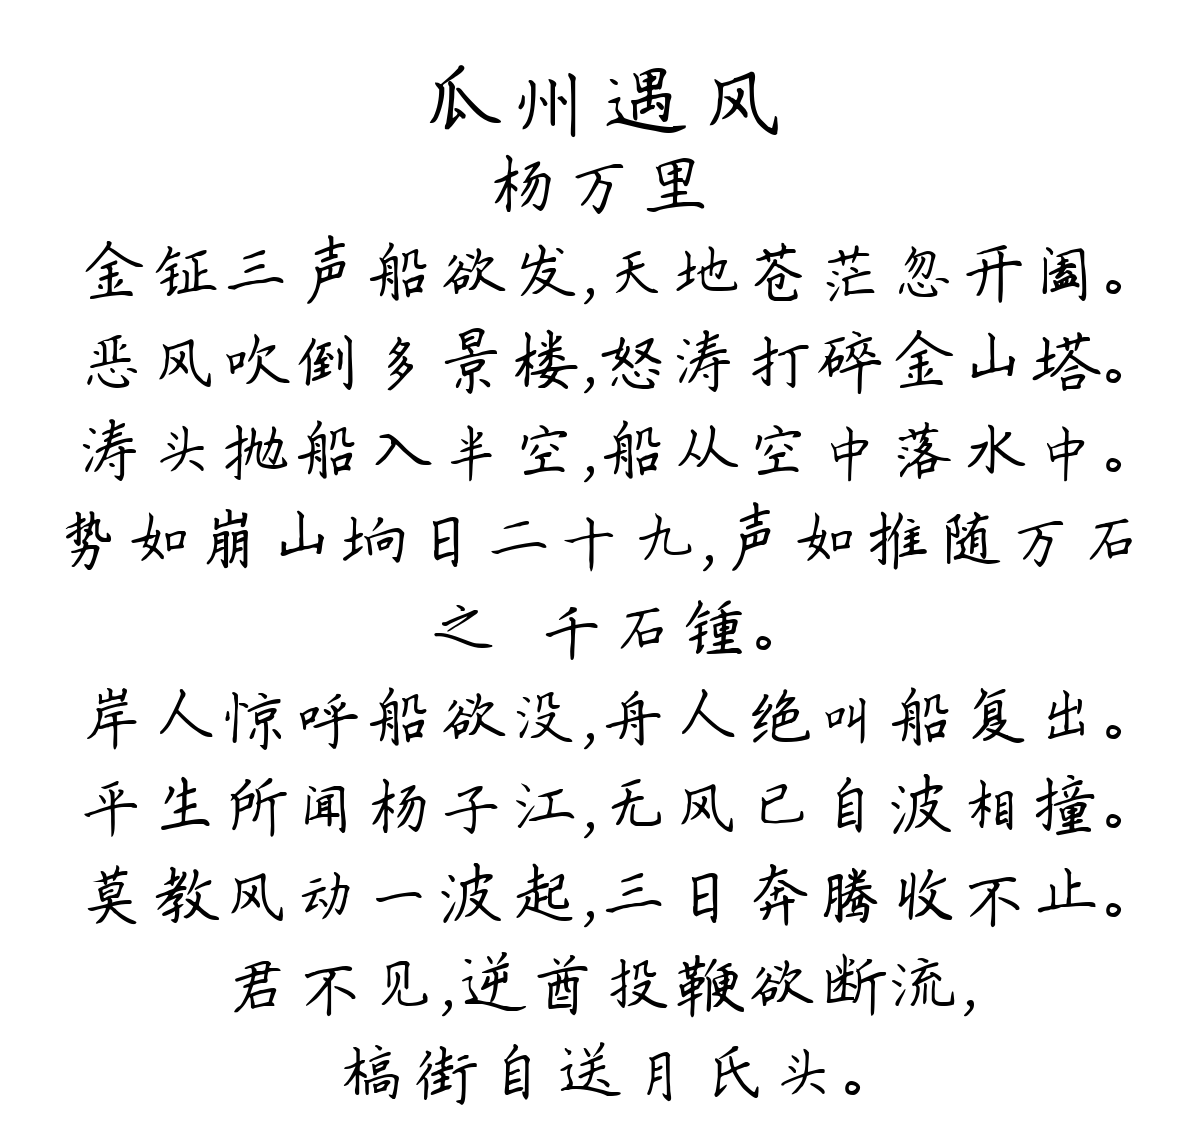 瓜州遇风
杨万里
金钲三声船欲发,天地苍茫忽开阖。
恶风吹倒多景楼,怒涛打碎金山塔。
涛头抛船入半空,船从空中落水中。
势如崩山垧日二十九,声如推随万石
之 千石锺。
岸人惊呼船欲没,舟人绝叫船复出。
平生所闻杨子江,无风已自波相撞。
莫教风动一波起,三日奔腾收不止。
君不见,逆酋投鞭欲断流,
槁街自送月氏头。